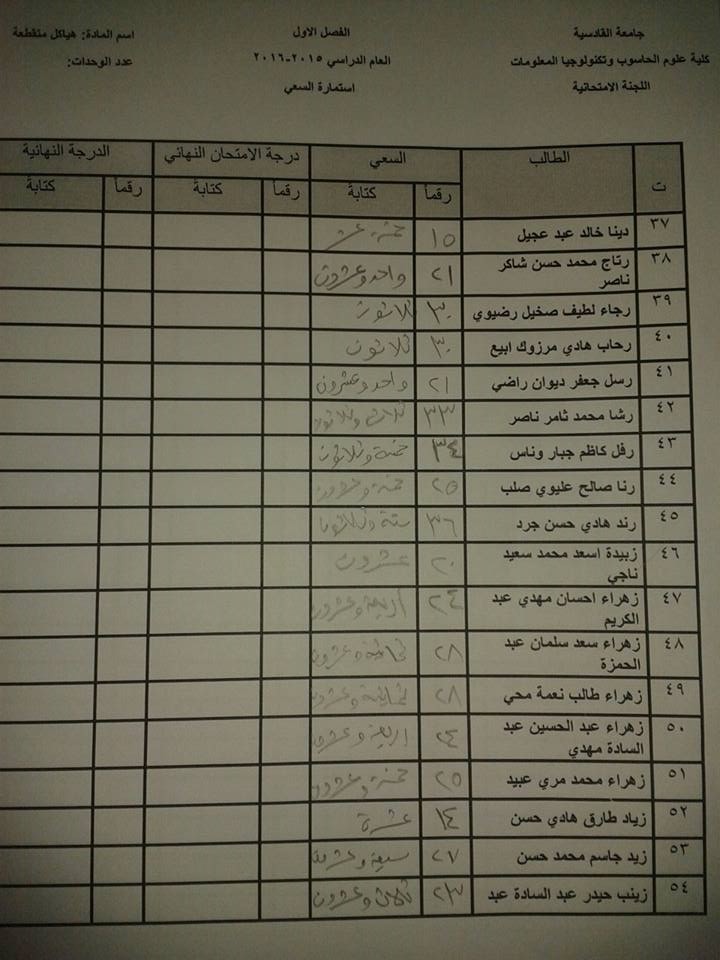 جامعة القادسية
كلية علوم الحاسوب وتكنولوجيا المعلومات
اللجنة الامتحانية
الفصل الاول
العام الدراسي ٢٠١٥-٢٠١٦
استمارة السعي
اسم المادة: هياكل متقطعة
عدد الوحدات:
ت الطالب السعي درجة الامتحان النهائي الدرجة النهائية
رقماً كتابة رقماً كتابة رقماً كتابة
٣٧ دينا خالد عبد عجيل ١٥ خمسة عشر
٣٨ رتاج محمد حسن شاكر ٢١ واحد وعشرون
ناصر
٣٩ رجاء لطيف صخيل رضيوي ٣٠ ثلاثون
٤٠ رحاب هادي مرزوك ابيع ٣٠ ثلاثون
٤١ رسل جعفر ديوان راضي ٢١ واحد وعشرون
٤٢ رشا محمد ثامر ناصر ٣٣ ثلاث وثلاثون
٤٣ رفل كاظم جبار وناس ٣٤ خمسة وثلاثون
٤٤ رنا صالح عليوي صلب ٢٥ خمسة وعشرون
٤٥ رند هادي حسن جرد ٣٦ ستة وثلاثون
٤٦ زبيدة اسعد محمد سعيد ٢٠ عشرون
ناجي
٤٧ زهراء احسان مهدي عبد ٢٤ أربعة وعشرون
الكريم
٤٨ زهراء سعد سلمان عبد ٢٨ ثمانية وعشرون
الحمزة
٤٩ زهراء طالب نعمة محي ٢٨ ثمانية وعشرون
٥٠ زهراء عبد الحسين عبد ٢٤ اربعة وعشرون
السادة مهدي
٥١ زهراء محمد مري عبيد ٢٥ خمسة وعشرون
٥٢ زياد طارق هادي حسن ١٤ عشرة
٥٣ زيد جاسم محمد حسن ٢٧ سبعة وعشرون
٥٤ زينب حيدر عبد السادة عبد ٢٣ ثلاث وعشرون